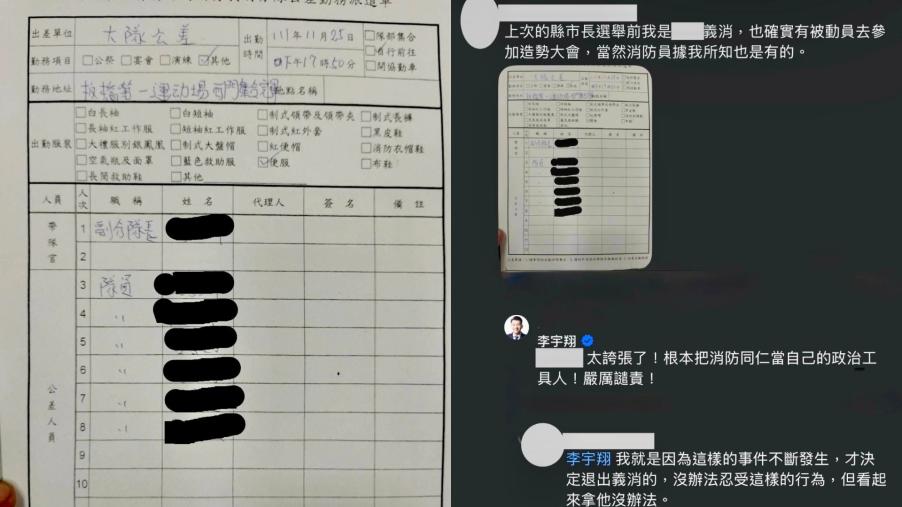 公差勤務派遣單
出差單位 大隊公差 出勤時間 111年11月25日 □隊部集合
□自行前往
勤務項目 □公祭 □宴會 □演練 ☑其他 下午17時50分 □開協勤車
勤務地址 板橋第一運動場 地點名稱
出勤服裝
□白長袖 □白短袖 □制式領帶及領帶夾 □制式長褲
□長袖紅工作服 □短袖紅工作服 □制式紅外套 □黑皮鞋
□大禮服別銀鳳凰 □制式大盤帽 □紅便帽 □消防衣帽鞋
□空氣瓶及面罩 □藍色救助服 ☑便服 □布鞋
□長筒救助鞋 □其他
人員 人次 職稱 姓名 代理人 簽名 備註
帶隊官 1 副分隊長
2
公差人員 3 隊員
4 〃
5 〃
6 〃
7 〃
8 〃
9
10
上次的縣市長選舉前我是 義消，也確實有被動員去參
加造勢大會，當然消防員據我所知也是有的。
李宇翔
太誇張了！根本把消防同仁當自己的政治工
具人！嚴厲譴責！
李宇翔 我就是因為這樣的事件不斷發生，才決
定退出義消的，沒辦法忍受這樣的行為，但看起
來拿他沒辦法。